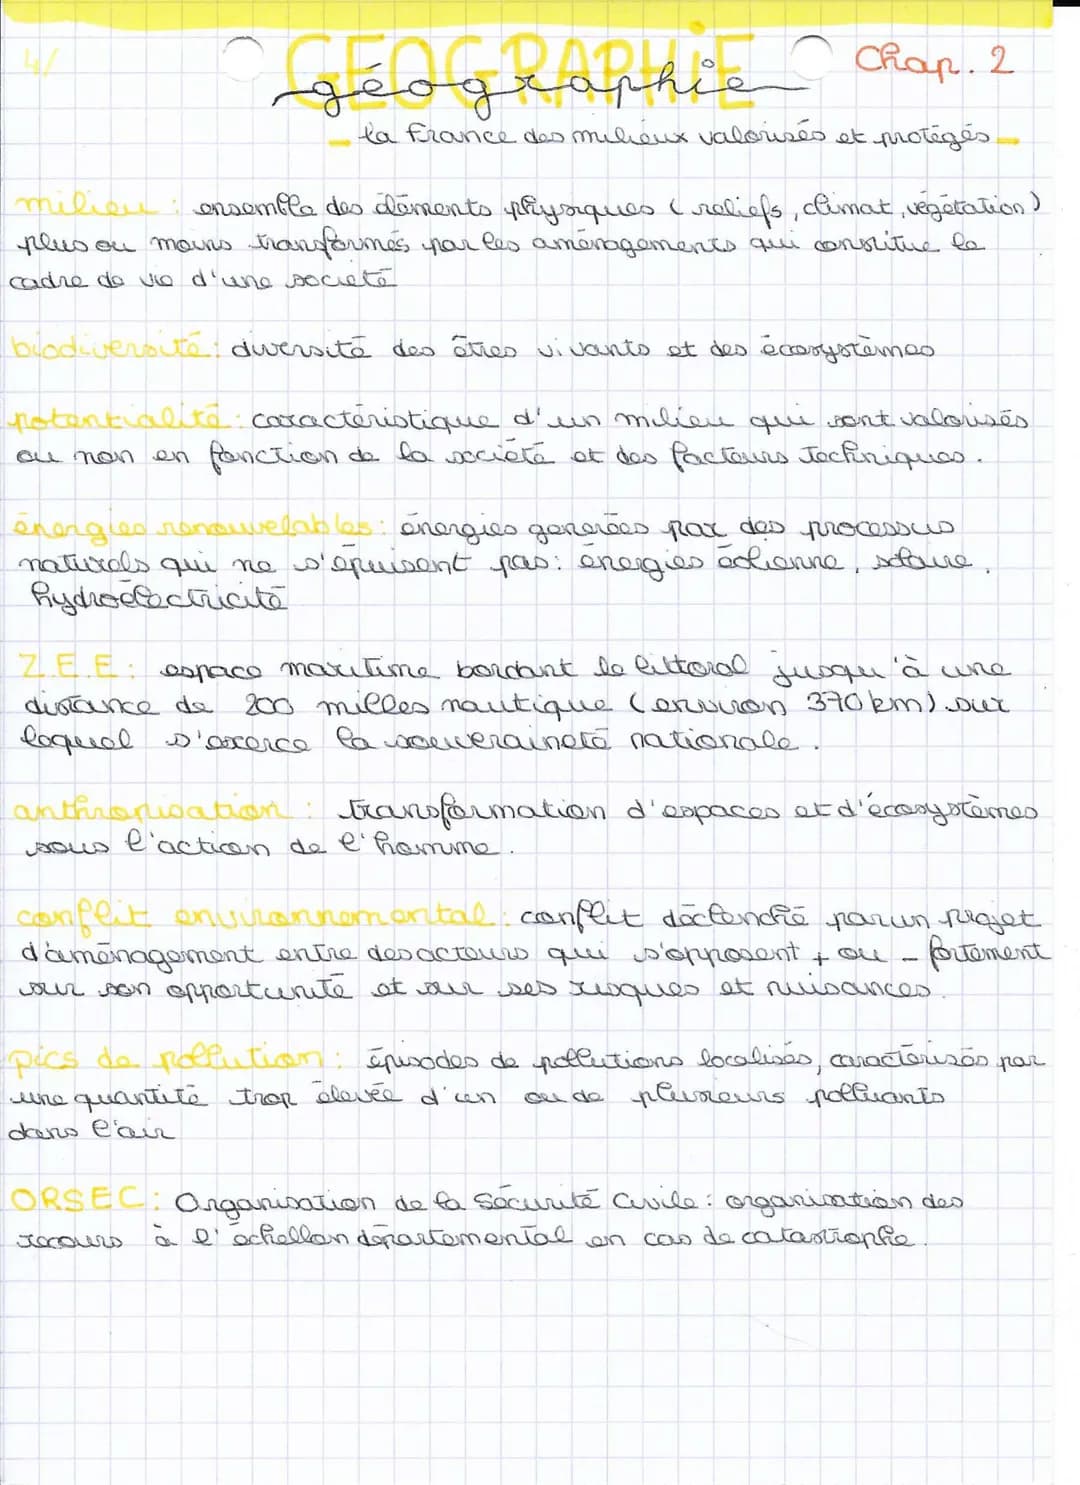 4/
GÉOGRAPHiE
géographie
Chap. 2
la France des milieux valorisés et protégés
milieu : ensemble des éléments physiques (reliefs, climat, végétation)
plus ou moins transformés par les aménagements qui constitue le
cadre de vie d'une société
biodiversité : diversité des êtres vivants et des écosystèmes
potentialité : caractéristique d'un milieu qui sont valorisés
ou non en fonction de la société et des facteurs techniques.
énergies renouvelables : énergies generées par des processus
naturels qui ne s'épuisent pas : énergies éolienne, solaire,
hydroélectricité
Z.E.E : espace maritime bordant le littoral jusqu'à une
distance de 200 milles nautique (environ 370 km) sur
lequel s'exerce la souveraineté nationale.
anthropisation : transformation d'espaces et d'écosystèmes
sous l'action de l'homme.
conflit environnemental : conflit déclenché par un projet
d'aménagement entre des acteurs qui s'opposent + ou - fortement
sur son opportunité et sur ses risques et nuisances.
pics de pollution : épisodes de pollutions localisés, caractérisés par
une quantité trop élevée d'un ou de plusieurs polluants
dans l'air
ORSEC : Organisation de la Sécurité Civile : organisation des
secours à l'échellon départemental en cas de catastrophe.